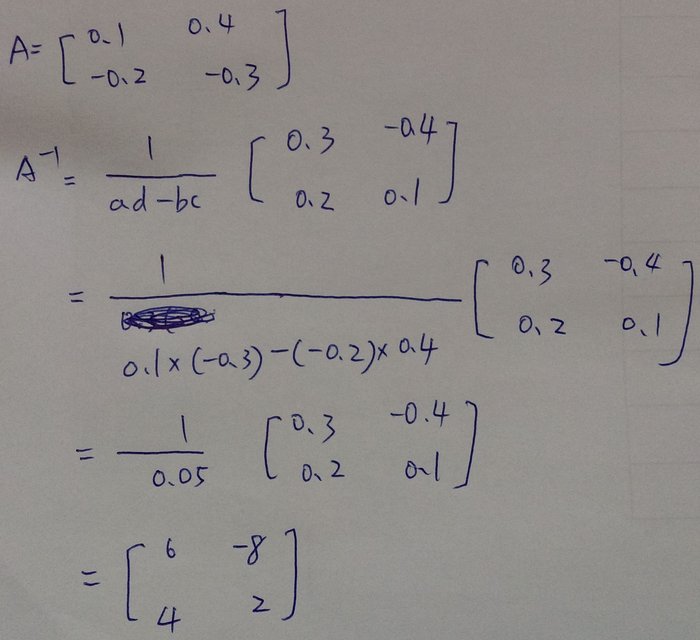 A = [ 0.1 0.4
-0.2 -0.3 ]
A⁻¹ = 1/(ad-bc) [ 0.3 -0.4
0.2 0.1 ]
= 1/(0.1×(-0.3)-(-0.2)×0.4) [ 0.3 -0.4
0.2 0.1 ]
= 1/0.05 [ 0.3 -0.4
0.2 0.1 ]
= [ 6 -8
4 2 ]